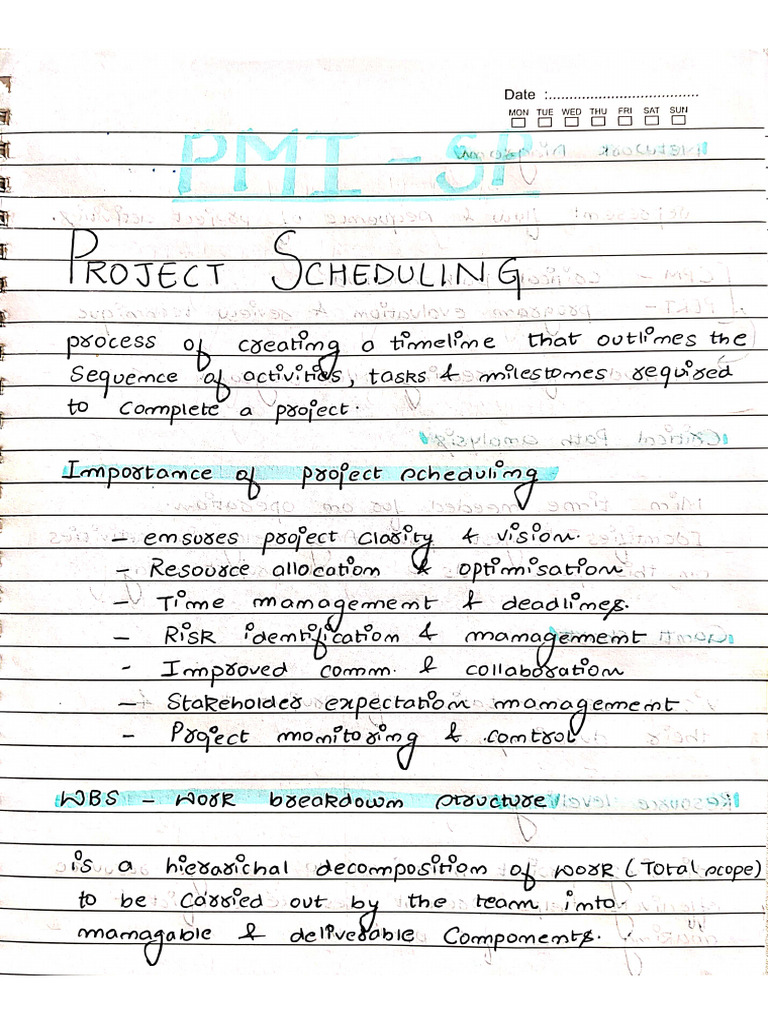 Date :....................................
MON TUE WED THU FRI SAT SUN
PMI - SP
PROJECT SCHEDULING
process of creating a timeline that outlines the
sequence of activities, tasks & milestones required
to complete a project.
Importance of project scheduling
- ensures project clarity & vision.
- Resource allocation & optimisation
- Time management & deadlines.
- Risk identification & management
- Improved comm. & collaboration
- Stakeholder expectation management
- Project monitoring & control
WBS - Work breakdown structure
is a hierarichal decomposition of work (Total scope)
to be carried out by the team into
managable & deliverable Components.